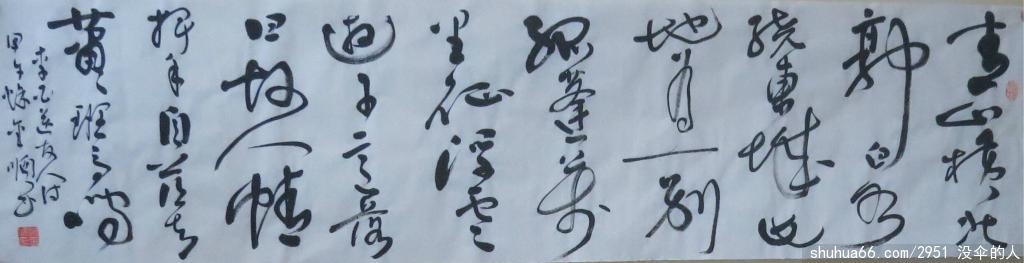 青山横北
郭白水
绕東城此
地为一别
孤蓬万
里征浮雲
遊子意落
日故人情
挥手自兹去
萧々班马鸣
李白送友人诗
甲午秋
shuhua66.com/2951 没伞的人